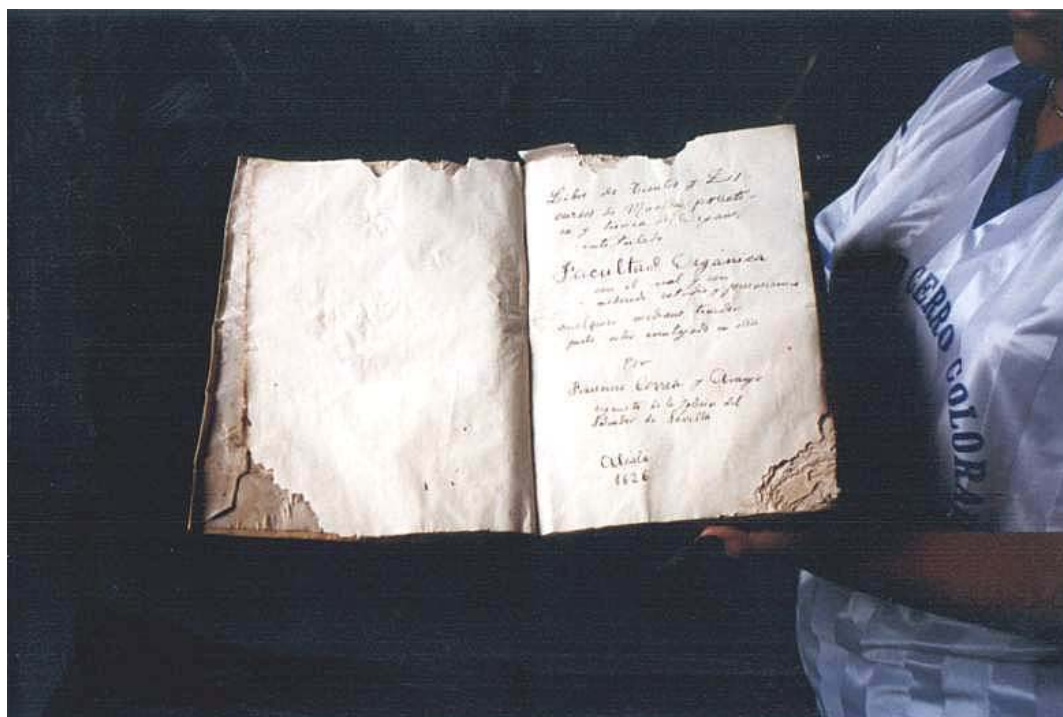 Libro de Tientos y Dis-
cursos de Musica practi-
ca y theorica de organo,
intitulado
Facultad Orgánica
con el cual y con
moderado estudio y perseverancia
cualquier mediano tañedor
puede salir aventajado en ella
Por
Francisco Correa y Arauxo
organista de la Iglesia del
Salvador de Sevilla
Alcalá
1626
CERRO COLORA